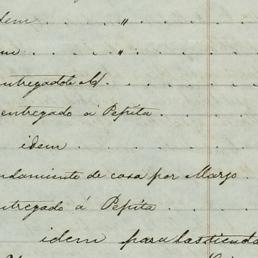 idem „
„
entregado á Pepita
idem
ndamiento de casa por Marzo
ntregado á Pepita
idem para las tienda